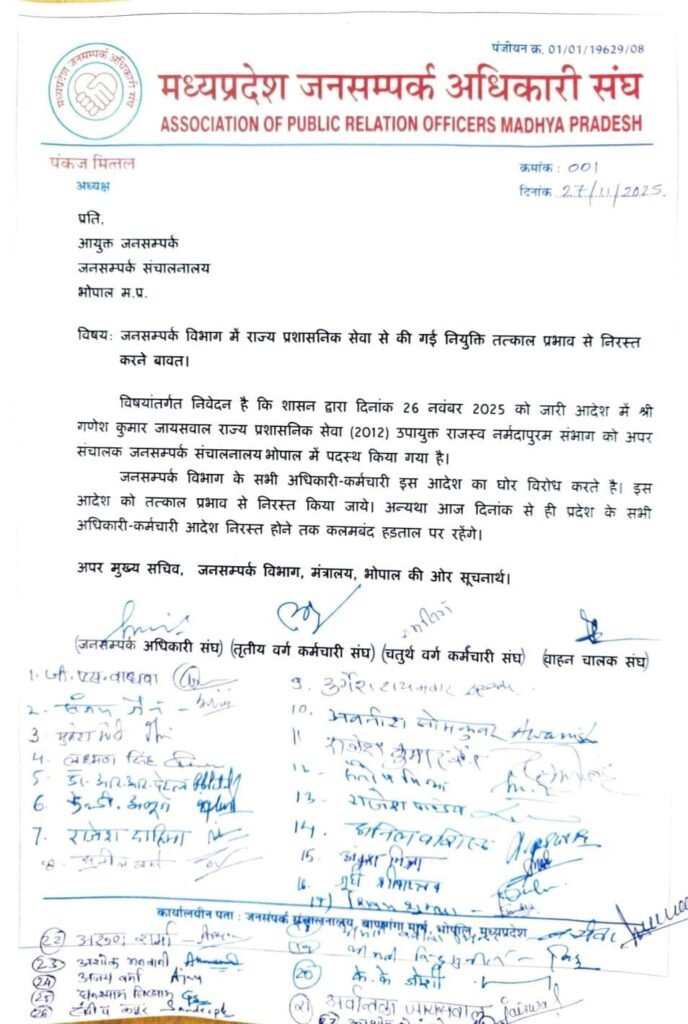 पंजीयन क्र. 01/01/19629/08
मध्यप्रदेश जनसम्पर्क अधिकारी संघ
मध्यप्रदेश जनसम्पर्क अधिकारी संघ
ASSOCIATION OF PUBLIC RELATION OFFICERS MADHYA PRADESH
पंकज मित्तल
अध्यक्ष
क्रमांक: 001
दिनांक 27/11/2025.
प्रति,
आयुक्त जनसम्पर्क
जनसम्पर्क संचालनालय
भोपाल म.प्र.
विषय: जनसम्पर्क विभाग में राज्य प्रशासनिक सेवा से की गई नियुक्ति तत्काल प्रभाव से निरस्त
करने बावत।
विषयांतर्गत निवेदन है कि शासन द्वारा दिनांक 26 नवंबर 2025 को जारी आदेश में श्री
गणेश कुमार जायसवाल राज्य प्रशासनिक सेवा (2012) उपायुक्त राजस्व नर्मदापुरम संभाग को अपर
संचालक जनसम्पर्क संचालनालय भोपाल में पदस्थ किया गया है।
जनसम्पर्क विभाग के सभी अधिकारी-कर्मचारी इस आदेश का घोर विरोध करते है। इस
आदेश को तत्काल प्रभाव से निरस्त किया जाये। अन्यथा आज दिनांक से ही प्रदेश के सभी
अधिकारी-कर्मचारी आदेश निरस्त होने तक कलमबंद हडताल पर रहेंगे।
अपर मुख्य सचिव, जनसम्पर्क विभाग, मंत्रालय, भोपाल की ओर सूचनार्थ।
(जनसम्पर्क अधिकारी संघ) (तृतीय वर्ग कर्मचारी संघ) (चतुर्थ वर्ग कर्मचारी संघ) (वाहन चालक संघ)
1. जी. एस. वाधवा
2. संजय जैन
3
4. लक्ष्मण सिंह
5 डॉ. आर. आर. पटेल
6
7. राजेश दाहिमा
8. सुनील वर्मा
9.
10. अवनीश सोमकुवर Awanish
11 राजेश कुमार
12. संतोष मिश्रा
13. राजेश पाण्डेय
14. अनिल वशिष्ठ
15.
16
17)
कार्यालयीन पता : जनसंपर्क संचालनालय, बाणगंगा मार्ग, भोपाल, मध्यप्रदेश
22 अरुण शर्मा
23 अशोक मनवानी
24 अजय वर्मा Ajay
25 घनश्याम
26 Sandeep
19
20 के. के. जोशी
21 अवन्तिका जायसवाल Jaiswal
27